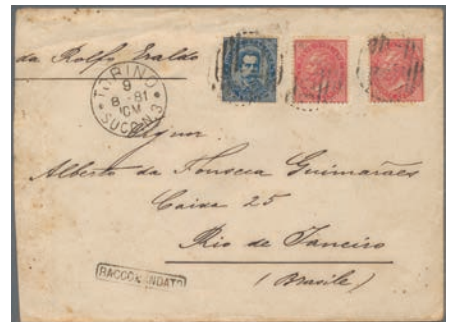 da Rolfo Eraldo
TORINO
9
8 - 81
10M
SUCC. N. 3
Signor
Alberto da Fonseca Guimarães
Caixa 25
Rio de Janeiro
(Brasile)
RACCOMANDATO